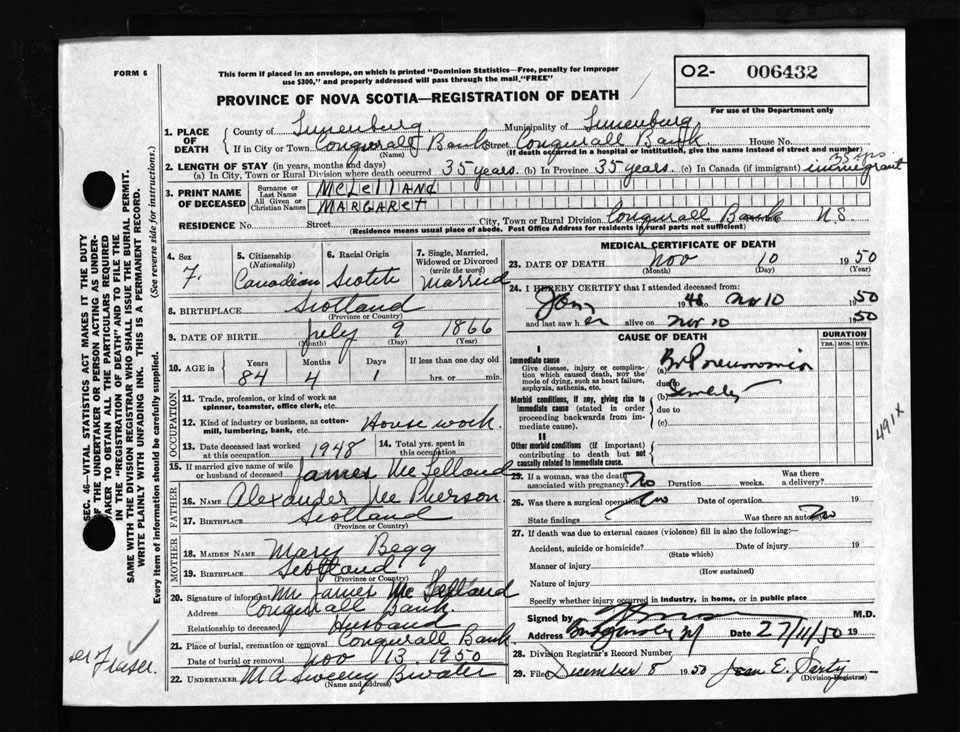 FORM 6
This form if placed in an envelope, on which is printed "Dominion Statistics—Free, penalty for improper
use $300," and properly addressed will pass through the mail, "FREE"
PROVINCE OF NOVA SCOTIA—REGISTRATION OF DEATH
02- 006432
For use of the Department only
1. PLACE OF DEATH
County of Lunenburg Municipality of Lunenburg
If in City or Town Conquerall Bank Street Conquerall Bank House No.
(Name) (If death occurred in a hospital or institution, give the name instead of street and number)
2. LENGTH OF STAY (in years, months and days) 35 yrs
(a) In City, Town or Rural Division where death occurred 35 years. (b) In Province 35 years. (c) In Canada (if immigrant) immigrant
3. PRINT NAME OF DECEASED
Surname or Last Name McLellAND
All Given or Christian Names MARGAREt
RESIDENCE No. Street City, Town or Rural Division Conquerall Bank NS
(Residence means usual place of abode. Post Office Address for residents in rural parts not sufficient)
4. Sex F.
5. Citizenship (Nationality) Canadian
6. Racial Origin Scotch
7. Single, Married, Widowed or Divorced (write the word) Married
8. BIRTHPLACE Scotland
(Province or Country)
9. DATE OF BIRTH July 9 1866
(Month) (Day) (Year)
10. AGE in Years Months Days If less than one day old
84 4 1 hrs. or min.
OCCUPATION
11. Trade, profession, or kind of work as
spinner, teamster, office clerk, etc.
12. Kind of industry or business, as cotton-
mill, lumbering, bank, etc. House work.
13. Date deceased last worked at this occupation 1948
14. Total yrs. spent in this occupation
15. If married give name of wife or husband of deceased James McLelland
FATHER
16. NAME Alexander McPherson
17. BIRTHPLACE Scotland
(Province or Country)
MOTHER
18. MAIDEN NAME Mary Begg
19. BIRTHPLACE Scotland
(Province or Country)
20. Signature of informant Mr James McLelland
Address Conquerall Bank.
Relationship to deceased Husband
21. Place of burial, cremation or removal Conquerall Bank.
Date of burial or removal Nov 13 1950
22. UNDERTAKER M A Sweeny Bwater
(Name and address)
MEDICAL CERTIFICATE OF DEATH
23. DATE OF DEATH Nov 10 1950
(Month) (Day) (Year)
24. I HEREBY CERTIFY that I attended deceased from:
Jan 1948 to Nov 10 1950
and last saw her alive on Nov 10 1950
CAUSE OF DEATH
DURATION
YRS. MOS. DYS.
I
Immediate cause
Give disease, injury or complica-
tion which caused death, not the
mode of dying, such as heart failure,
asphyxia, asthenia, etc.
(a) Br Pneumonia
due to
(b) Senility
Morbid conditions, if any, giving rise to
immediate cause (stated in order
proceeding backwards from im-
mediate cause).
due to
(c)
II
Other morbid conditions (if important)
contributing to death but not
causally related to immediate cause.
491X
25. If a woman, was the death associated with pregnancy? No Duration weeks. Was there a delivery?
26. Was there a surgical operation No Date of operation 19
State findings Was there an autopsy No
27. If death was due to external causes (violence) fill in also the following:
Accident, suicide or homicide? Date of injury 19
(State which)
Manner of injury
(How sustained)
Nature of injury
Specify whether injury occurred in industry, in home, or in public place
Signed by M.D.
Address Date 27/11/50 19
28. Division Registrar's Record Number
29. Filed December 8 1950 Jean E.
(Division Registrar)
SEC. 46—VITAL STATISTICS ACT MAKES IT THE DUTY
OF THE UNDERTAKER OR PERSON ACTING AS UNDER-
TAKER TO OBTAIN ALL THE PARTICULARS REQUIRED
IN THE "REGISTRATION OF DEATH" AND TO FILE THE
SAME WITH THE DIVISION REGISTRAR WHO SHALL ISSUE THE BURIAL PERMIT.
WRITE PLAINLY WITH UNFADING INK. THIS IS A PERMANENT RECORD.
Every item of information should be carefully supplied. (See reverse side for instructions.)
Fraser.